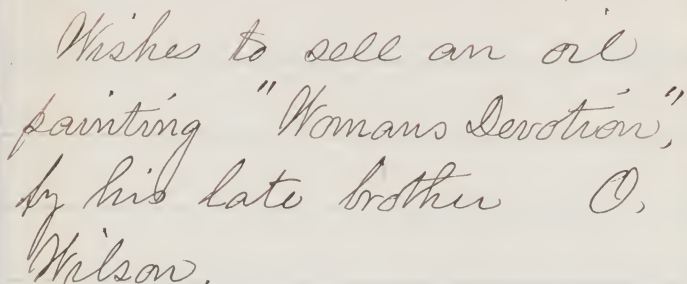 Wishes to sell an oil
painting "Womans Devotion",
by his late brother O.
Wilson.